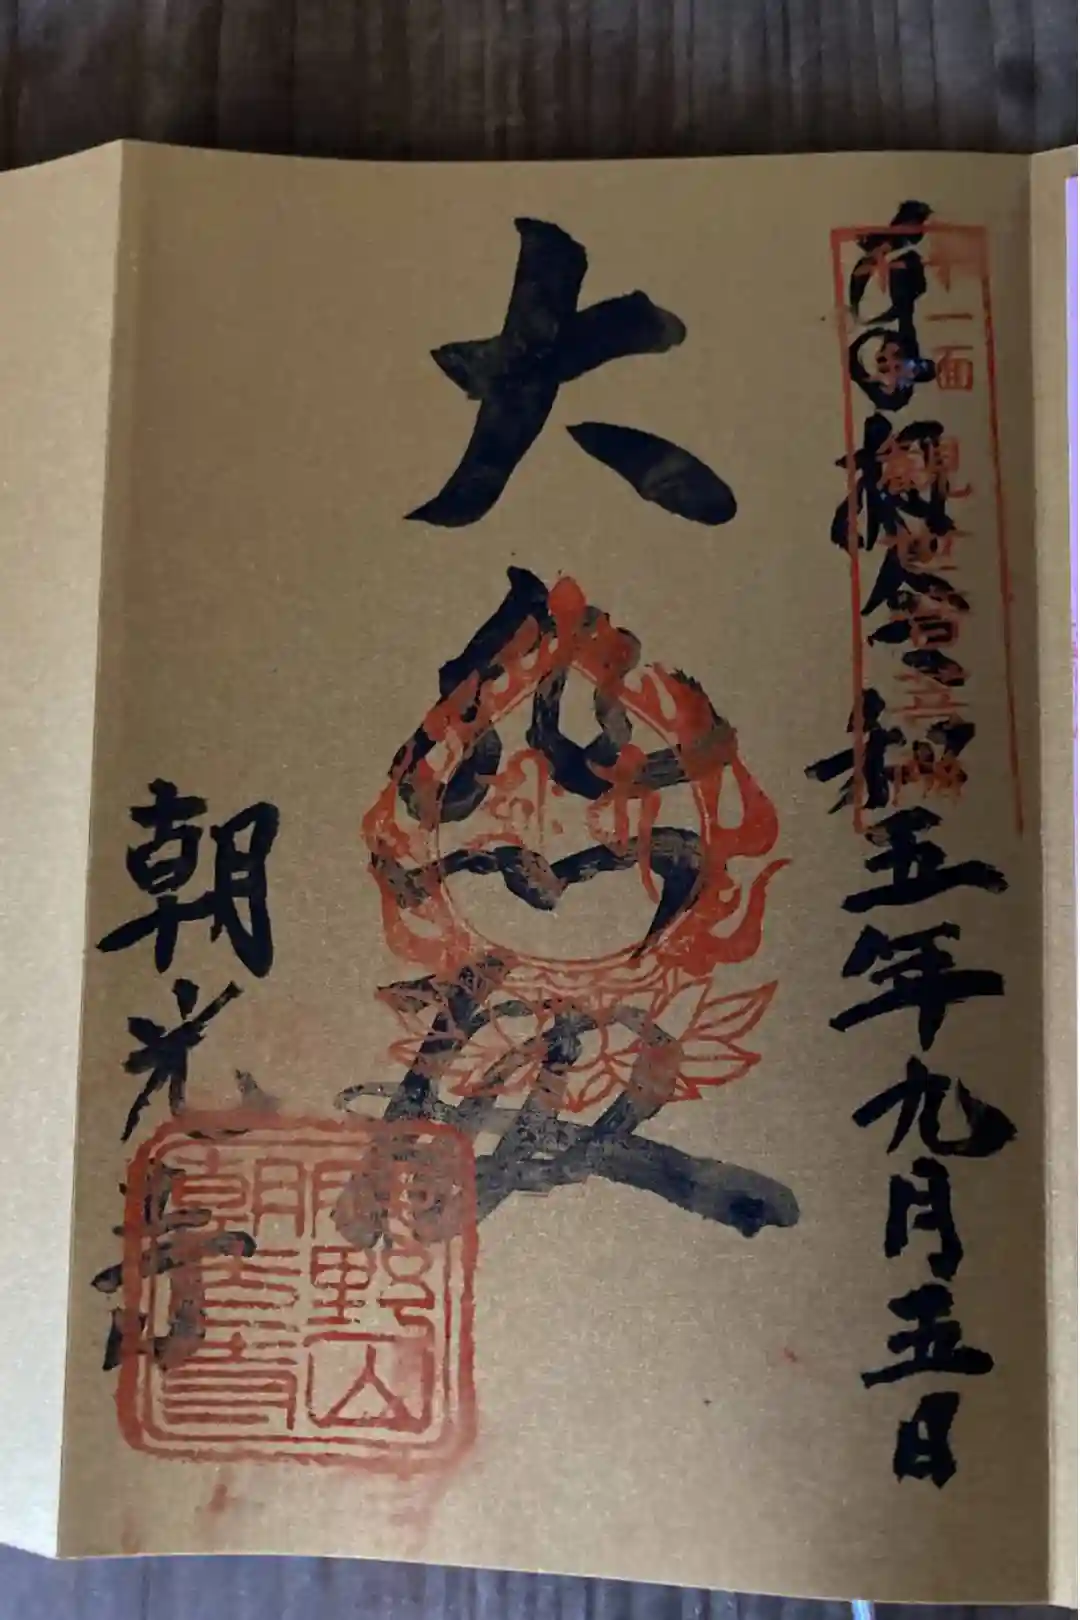 奉拝令和五年九月五日
十一面
千手
観世音菩薩
大悲
朝光寺
鹿野山
朝光寺